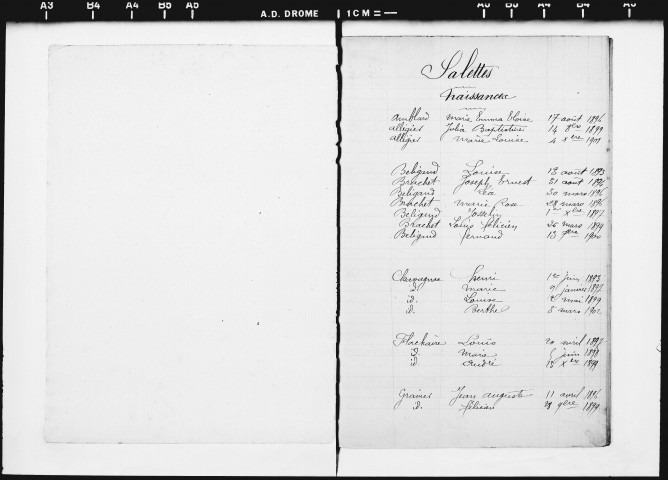 A3 B4 A4 B5 A5
A.D. DROME 1CM = —
A5 B5 A4 B4 A3
Salettes
Naissances
Amblard Marie Emma Eloïse 17 août 1896
Allégier Julia Baptistine 14 8bre 1899
Allégier Marie Louise 4 Xbre 1901
Béligand Louise 13 août 1893
Brachet Joseph Ernest 21 août
Béligand Léa 30 mars 1896
Brachet Marie Rose 28 mars 1896
Béligand Josselin 1er Xbre 1897
Brachet Louis Félicien 26 mars 1899
Béligand Fernand 13 1900
Henri 1er juin 1893
id. Marie 9 janvier
id. Louise 2 mai 1899
id. Berthe 8 mars 1902
Flachaire Louis 20 avril
id. Marie juin 1898
id André 13 Xbre 1899
Granier Jean Auguste 11 avril 1896
id. Félicien 28 9bre 1899